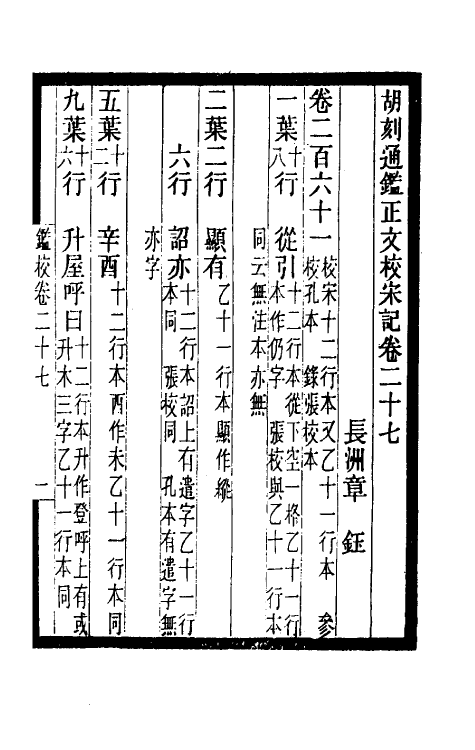 胡刻通鑑正文校宋記卷二十七
長洲章 鈺
卷二百六十一 校宋十二行本又乙十一行本 參
校孔本 錄張校本
一葉十八行 從引 十二行本從下空一格乙十一行
本作仍字 張校與乙十一行本
同云無注本亦無
二葉二行 顯有 乙十一行本顯作縱
六行 詔亦 十二行本詔上有遣字乙十一行
本同 張校同 孔本有遣字無
亦字
五葉十二行 辛酉 十二行本酉作未乙十一行本同
九葉十六行 升屋呼曰 十二行本升作登呼上有或
升木三字乙十一行本同
鑑校卷二十七 一